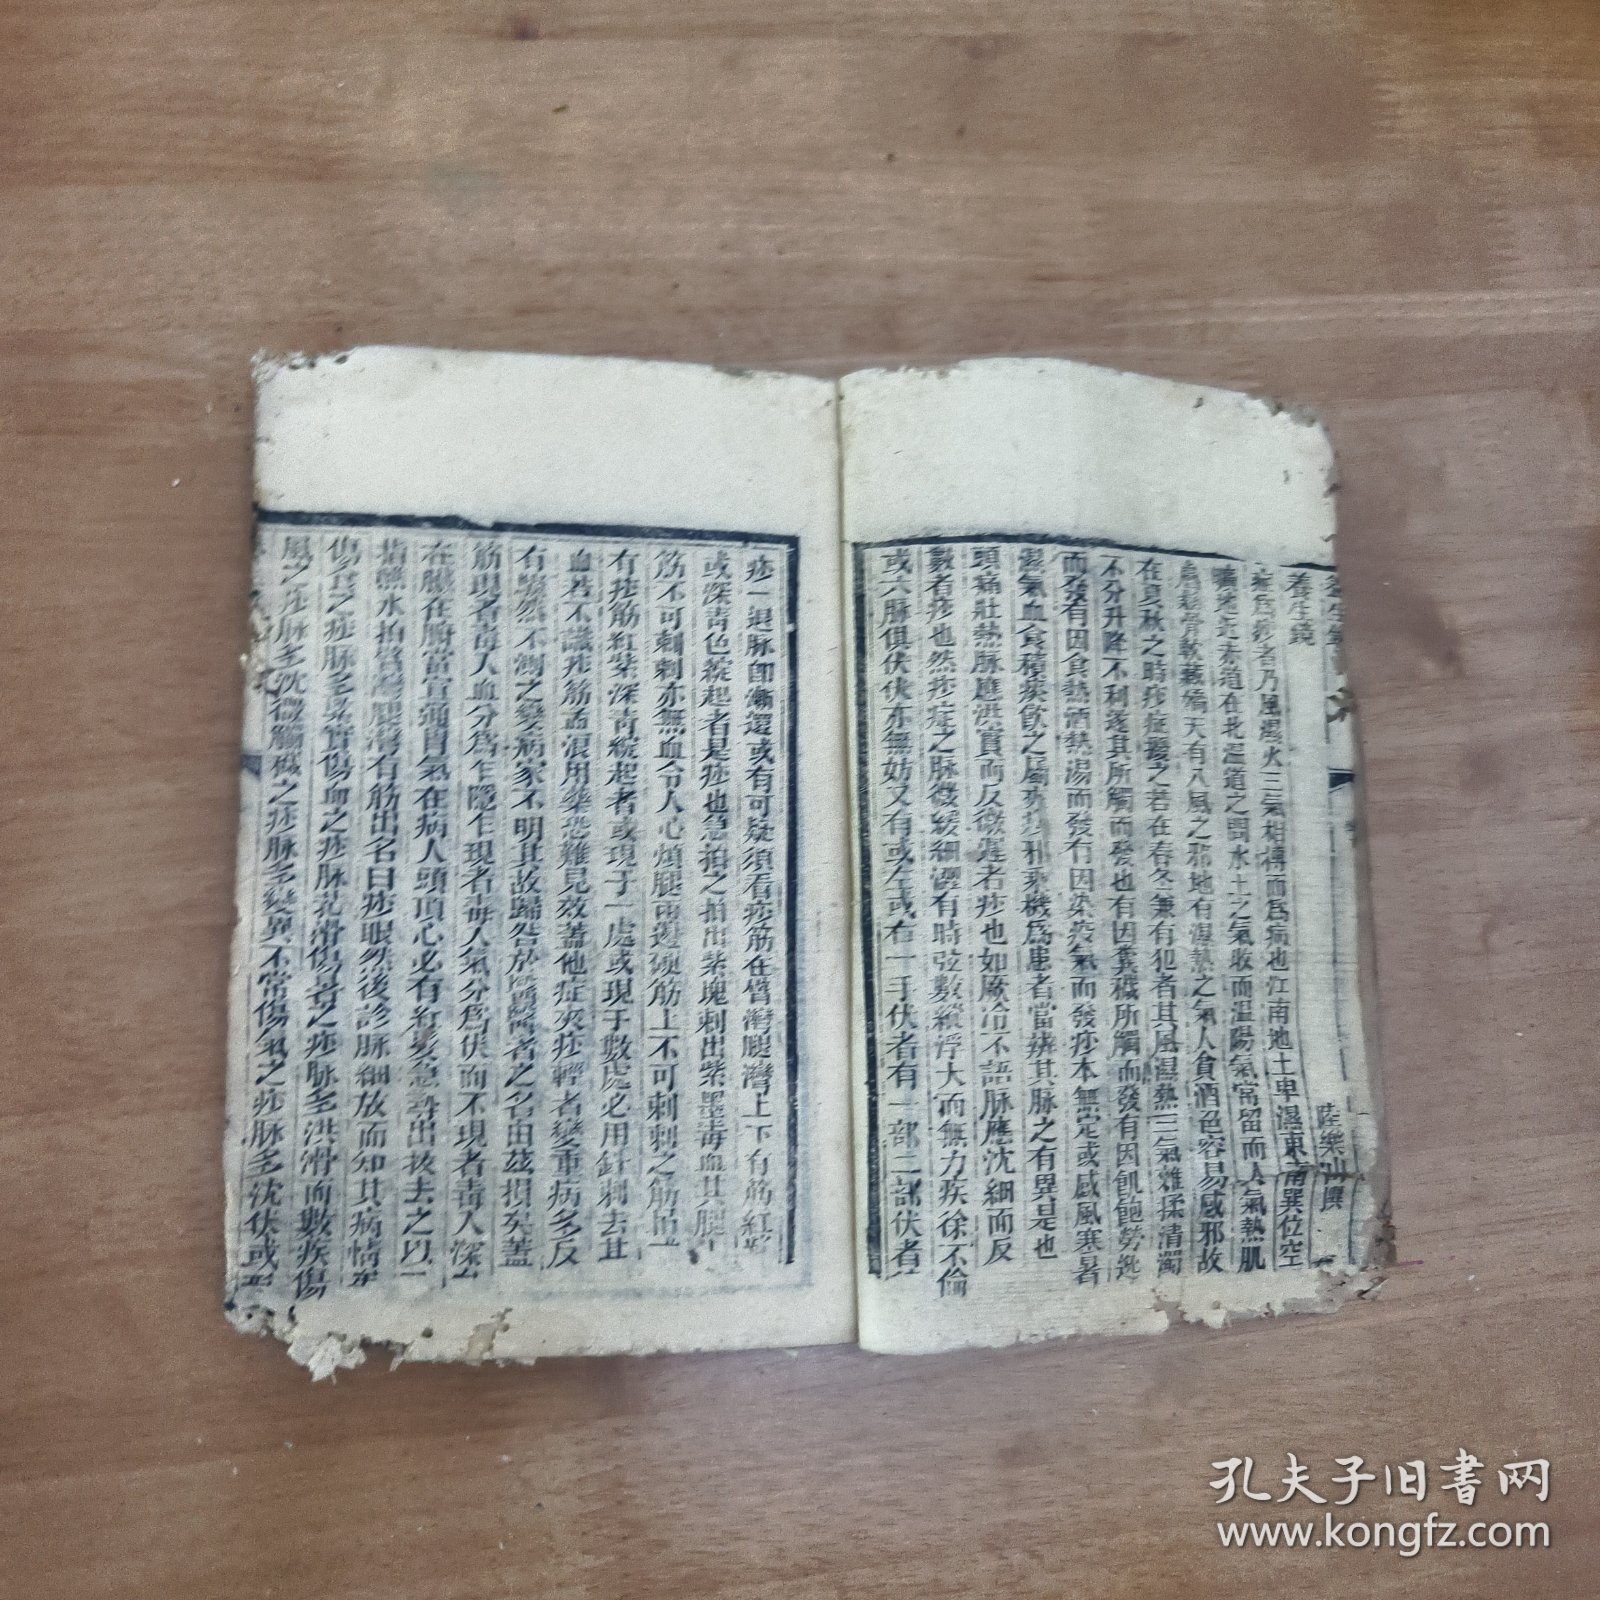 養生鏡
陸樂山撰
痧者乃風濕火三氣相搏而為病也江南地土卑濕東南巽位空
地近赤道在北溫道之間水土之氣收而温陽氣常留而人氣熱肌
骨軟天有八風之邪地有濕熱之氣人貪酒色容易感邪故
在夏秋之時痧症最之若在春冬兼有犯者其風濕熱三氣雜揉清濁
不分升降不利遂其所觸而發也有因糞穢所觸而發有因飢飽勞
而發有因食熱酒熱湯而發有因染疫氣而發痧本無定或感風寒暑
濕氣血食積痰飲之屬痧邪乘機為患者當辨其脉之有異是也
頭痛壯熱脉應洪實而反微遲者痧也如厥冷不語脉應沈細而反
數者痧也然痧症之脉微緩細濇有時弦數縱浮大而無力疾徐不倫
或六脉俱伏伏亦無妨又有或左或右一手伏者有一部二部伏者
痧一退脉即漸還或有可疑須看痧筋在臂灣腿灣上下有筋紅
或深青色綻起者是痧也急拍之拍出紫塊刺出紫墨毒血其腿
筋不可刺刺亦無血令人心煩腿兩邊硬筋上不可刺刺之筋吊
有痧筋紅紫深青綻起者或現于一處或現于數處必用針刺去其
血若不識痧筋孟浪用藥恐難見效蓋他症夾痧輕者變重病多反
有驟然不測之變病家不明其故歸咎於醫者之名由茲損矣蓋
筋現者毒入血分為乍隱乍現者毒入氣分為伏而不現者毒入深
在臟在腑當宣通胃氣在病人頭頂心必有紅髮急尋出拔去之以
蘸水拍臂灣腿灣有筋出名曰痧眼然後診脉細放而知其病情
傷食之痧脉多緊實傷血之痧脉芤滑傷暑之痧脉多洪滑而數疾傷
風之痧脉多沈微觸穢之痧脉多變異不常傷氣之痧脉多沈伏或
孔夫子旧书网
www.kongfz.com